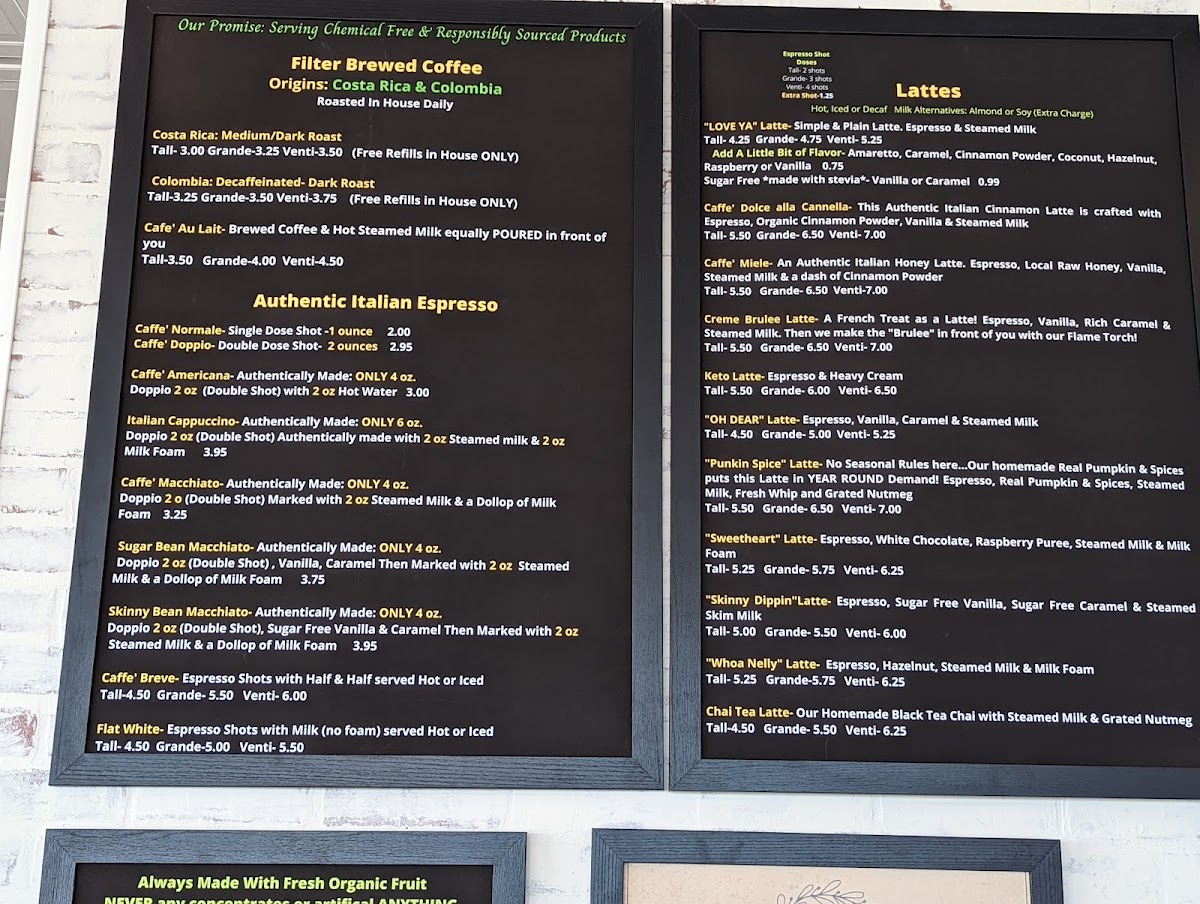 Our Promise: Serving Chemical Free & Responsibly Sourced Products
Filter Brewed Coffee
Origins: Costa Rica & Colombia
Roasted In House Daily
Costa Rica: Medium/Dark Roast
Tall- 3.00 Grande-3.25 Venti-3.50 (Free Refills in House ONLY)
Colombia: Decaffeinated- Dark Roast
Tall-3.25 Grande-3.50 Venti-3.75 (Free Refills in House ONLY)
Cafe' Au Lait- Brewed Coffee & Hot Steamed Milk equally POURED in front of
you
Tall-3.50 Grande-4.00 Venti-4.50
Authentic Italian Espresso
Caffe' Normale- Single Dose Shot -1 ounce 2.00
Caffe' Doppio- Double Dose Shot- 2 ounces 2.95
Caffe' Americana- Authentically Made: ONLY 4 oz.
Doppio 2 oz (Double Shot) with 2 oz Hot Water 3.00
Italian Cappuccino- Authentically Made: ONLY 6 oz.
Doppio 2 oz (Double Shot) Authentically made with 2 oz Steamed milk & 2 oz
Milk Foam 3.95
Caffe' Macchiato- Authentically Made: ONLY 4 oz.
Doppio 2 o (Double Shot) Marked with 2 oz Steamed Milk & a Dollop of Milk
Foam 3.25
Sugar Bean Macchiato- Authentically Made: ONLY 4 oz.
Doppio 2 oz (Double Shot) , Vanilla, Caramel Then Marked with 2 oz Steamed
Milk & a Dollop of Milk Foam 3.75
Skinny Bean Macchiato- Authentically Made: ONLY 4 oz.
Doppio 2 oz (Double Shot), Sugar Free Vanilla & Caramel Then Marked with 2 oz
Steamed Milk & a Dollop of Milk Foam 3.95
Caffe' Breve- Espresso Shots with Half & Half served Hot or Iced
Tall-4.50 Grande- 5.50 Venti- 6.00
Flat White- Espresso Shots with Milk (no foam) served Hot or Iced
Tall- 4.50 Grande-5.00 Venti- 5.50
Espresso Shot
Doses
Tall- 2 shots
Grande- 3 shots
Venti- 4 shots
Extra Shot-1.25
Lattes
Hot, Iced or Decaf Milk Alternatives: Almond or Soy (Extra Charge)
"LOVE YA" Latte- Simple & Plain Latte. Espresso & Steamed Milk
Tall- 4.25 Grande- 4.75 Venti- 5.25
Add A Little Bit of Flavor- Amaretto, Caramel, Cinnamon Powder, Coconut, Hazelnut,
Raspberry or Vanilla 0.75
Sugar Free *made with stevia*- Vanilla or Caramel 0.99
Caffe' Dolce alla Cannella- This Authentic Italian Cinnamon Latte is crafted with
Espresso, Organic Cinnamon Powder, Vanilla & Steamed Milk
Tall- 5.50 Grande- 6.50 Venti- 7.00
Caffe' Miele- An Authentic Italian Honey Latte. Espresso, Local Raw Honey, Vanilla,
Steamed Milk & a dash of Cinnamon Powder
Tall- 5.50 Grande- 6.50 Venti-7.00
Creme Brulee Latte- A French Treat as a Latte! Espresso, Vanilla, Rich Caramel &
Steamed Milk. Then we make the "Brulee" in front of you with our Flame Torch!
Tall- 5.50 Grande- 6.50 Venti- 7.00
Keto Latte- Espresso & Heavy Cream
Tall- 5.50 Grande- 6.00 Venti- 6.50
"OH DEAR" Latte- Espresso, Vanilla, Caramel & Steamed Milk
Tall- 4.50 Grande- 5.00 Venti- 5.25
"Punkin Spice" Latte- No Seasonal Rules here...Our homemade Real Pumpkin & Spices
puts this Latte in YEAR ROUND Demand! Espresso, Real Pumpkin & Spices, Steamed
Milk, Fresh Whip and Grated Nutmeg
Tall- 5.50 Grande- 6.50 Venti- 7.00
"Sweetheart" Latte- Espresso, White Chocolate, Raspberry Puree, Steamed Milk & Milk
Foam
Tall- 5.25 Grande- 5.75 Venti- 6.25
"Skinny Dippin"Latte- Espresso, Sugar Free Vanilla, Sugar Free Caramel & Steamed
Skim Milk
Tall- 5.00 Grande- 5.50 Venti- 6.00
"Whoa Nelly" Latte- Espresso, Hazelnut, Steamed Milk & Milk Foam
Tall- 5.25 Grande-5.75 Venti- 6.25
Chai Tea Latte- Our Homemade Black Tea Chai with Steamed Milk & Grated Nutmeg
Tall-4.50 Grande- 5.50 Venti- 6.25
Always Made With Fresh Organic Fruit
NEVER any concentrates or artifical ANYTHING